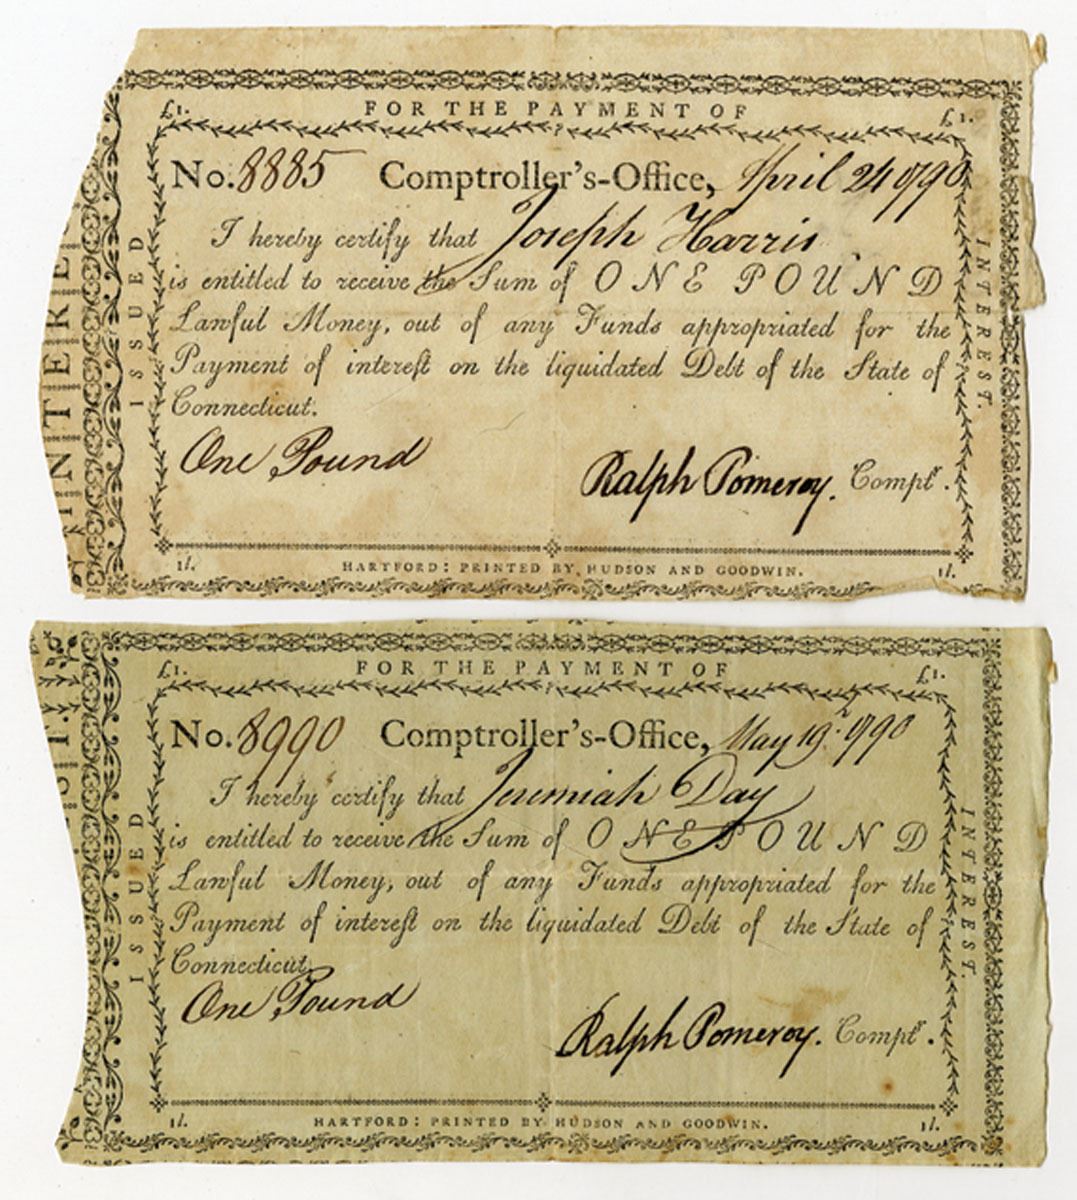 £1. FOR THE PAYMENT OF £1.
No. 8885 Comptroller's-Office, April 24 1790
I hereby certify that Joseph Harris
is entitled to receive the Sum of ONE POUND
Lawful Money, out of any Funds appropriated for the
Payment of intereſt on the liquidated Debt of the State of
Connecticut.
One Pound
Ralph Pomeroy. Comptr.
1l. HARTFORD: PRINTED BY HUDSON AND GOODWIN. 1l.
ISSUED
INTEREST.
INTERE
£1. FOR THE PAYMENT OF £1.
No. 8990 Comptroller's-Office, May 19th 1790
I hereby certify that Jeremiah Day
is entitled to receive the Sum of ONE POUND
Lawful Money, out of any Funds appropriated for the
Payment of intereſt on the liquidated Debt of the State of
Connecticut.
One Pound
Ralph Pomeroy. Comptr.
1l. HARTFORD: PRINTED BY HUDSON AND GOODWIN. 1l.
ISSUED
INTEREST.
ST.